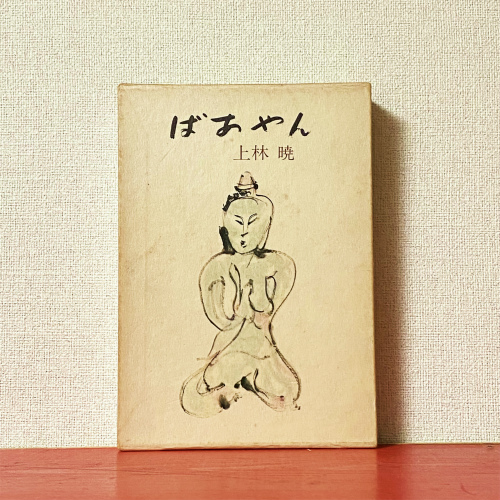 ばあやん
上林 暁